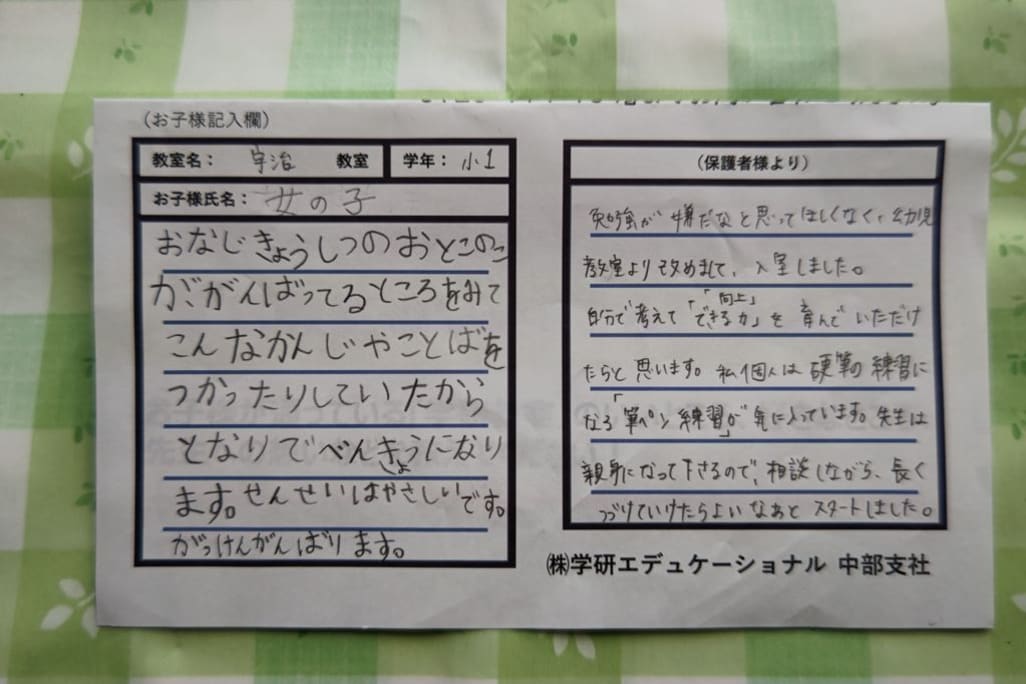 (お子様記入欄)
教室名: 宇治 教室 学年: 小1
お子様氏名: 女の子
おなじきょうしつのおとこのこ
が、がんばってるところをみて
こんなかんじやことばを
つかったりしていたから
となりでべんきょうになり
ます。せんせいはやさしいです。
がっけんがんばります。
(保護者様より)
勉強が嫌だなと思ってほしくなく、幼児
教室より改めまして、入室しました。
「向上」
自分で考えて「できる力」を育んでいただけ
たらと思います。私個人は硬筆の練習に
なる「筆ペン練習」が気に入っています。先生は
親身になって下さるので、相談しながら、長く
つづけていけたらよいなぁとスタートしました。
㈱学研エデュケーショナル 中部支社